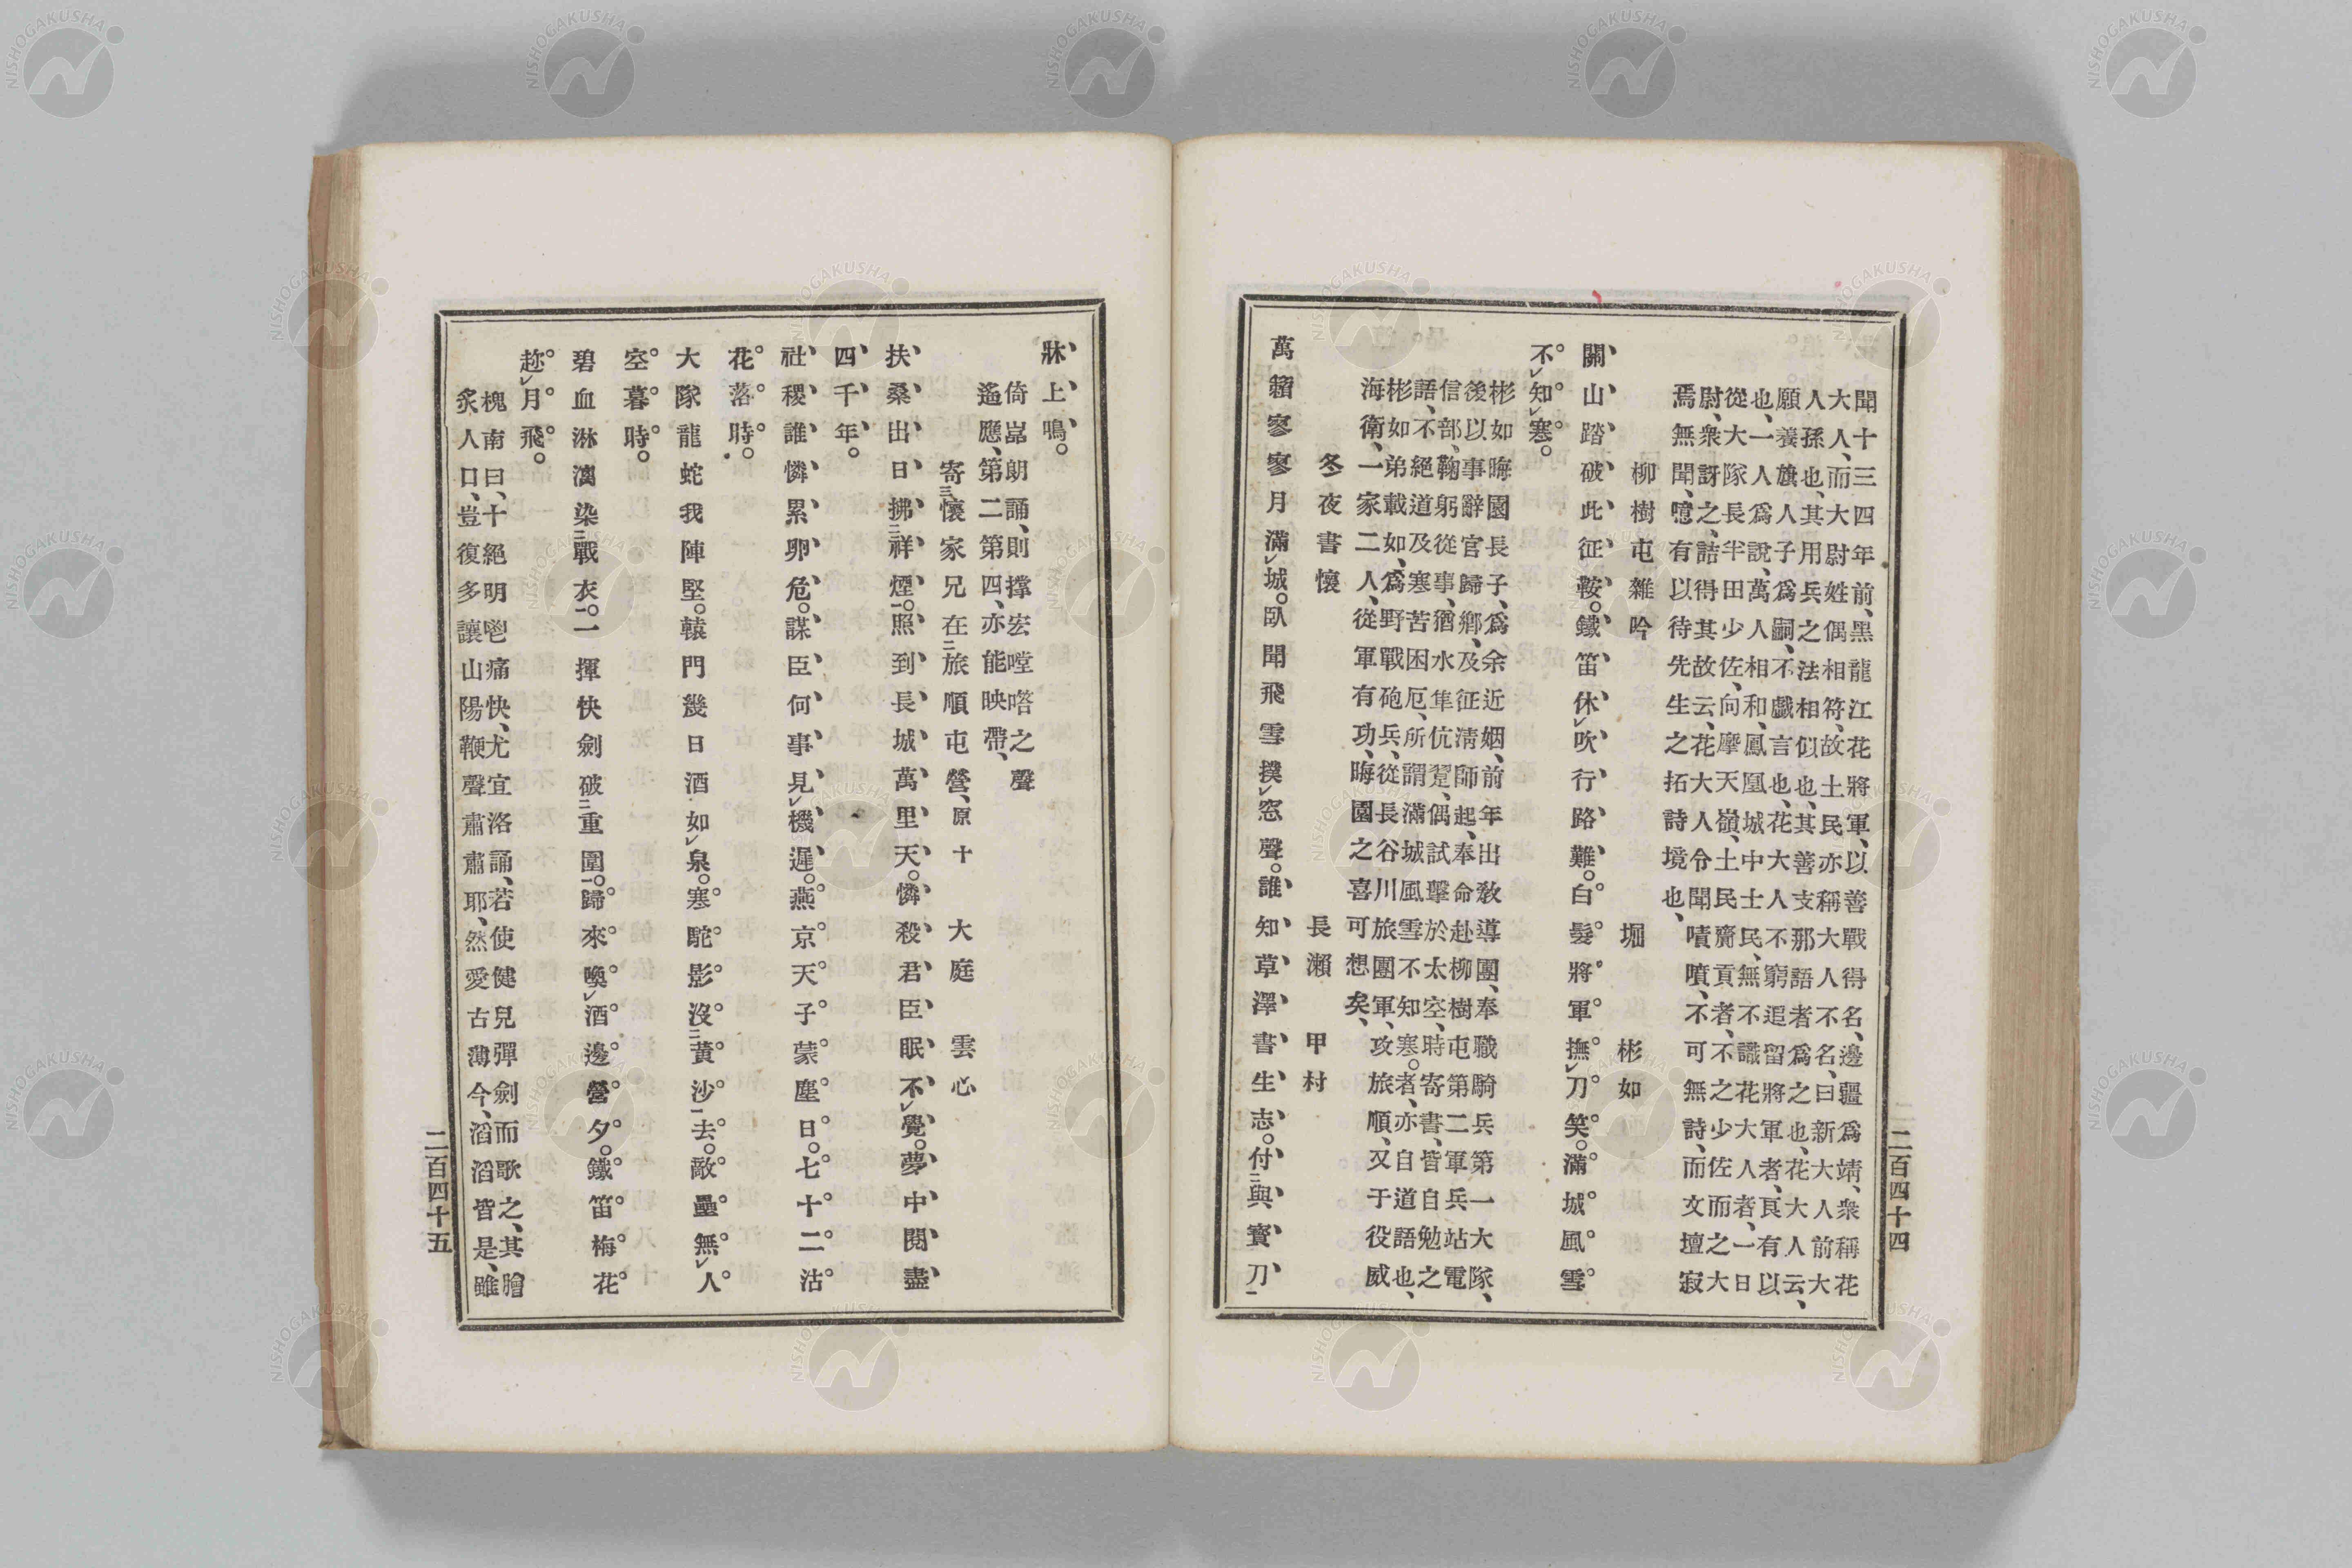 聞十三四年前、黑龍江花將軍、以善戰得名、邊疆爲靖、衆稱花
大人、而大尉姓偶相符、故土民亦稱大人不名、曰新大人前稱大
人孫也、其用兵之法相似也、其善支那語者爲之也、花大人云、
願養旗人子爲嗣、不戲言也、花大人不窮逗留將軍者、艮有以
也、一人爲說、萬人相和、鳳凰城中士民、無不識花大人者、一日
從大隊長半田少佐、向摩天嶺、土民齎貢者、不之少佐而之大
尉、衆訝之、詰得其故云、花大人令聞嘖噴、不可無詩、而文壇寂
焉無聞、噫有以待先生之拓詩境也、
柳樹屯雜吟 堀 彬如
關山踏破此征鞍。鐵笛休レ吹行路難。白髮將軍撫レ刀笑。滿城風雪
不レ知レ寒。
彬如晦園長子、爲余近姻、前年出敎導團、奉職騎兵第一大隊、
後以事辭官歸鄉、及征淸師起、奉命赴柳樹屯第二軍兵站電
信部、鞠躬從事、猶水隼伉躄、偶試擊於太空、時寄書、皆自勉之
語、不絕道及寒苦困厄、所謂滿城風雪不知寒。者、亦自道語也、
彬如弟載如、爲野戰砲兵、從長谷川旅團軍、攻旅順、又于役威
海衞、一家二人、從軍有功、晦園之喜可想矣、
冬夜書懷 長瀨甲村
萬籟寥寥月滿レ城。臥聞飛雪撲レ窓聲。誰知草澤書生志。付二與寶刀一
牀上鳴。
倚嵓朗誦、則撑宏嘡嗒之聲
遙應、第二第四、亦能映帶、
寄三懷家兄在二旅順屯營、原十 大庭雲心
扶桑出日拂二祥煙一。照到長城萬里天。憐殺君臣眠不レ覺。夢中閱盡
四千年。
社稷誰憐累卵危。謀臣何事見レ機遲。燕京天子蒙塵日。七十二沽
花落時。
大隊龍蛇我陣堅。轅門幾日酒如レ泉。寒駝影沒二黃沙一去。敵壘無レ人
空暮時。
碧血淋漓染二戰衣。一一揮快劍破二重圍一。歸來喚レ酒邊營夕。鐵笛梅花
趂レ月飛。
槐南曰、十絕明鬯痛快、尤宜洛誦、若使健兒彈劍而歌之、其膾
炙人口、豈復多讓山陽鞭聲肅肅耶、然愛古薄今、滔滔皆是、雖
二百四十四
二百四十五